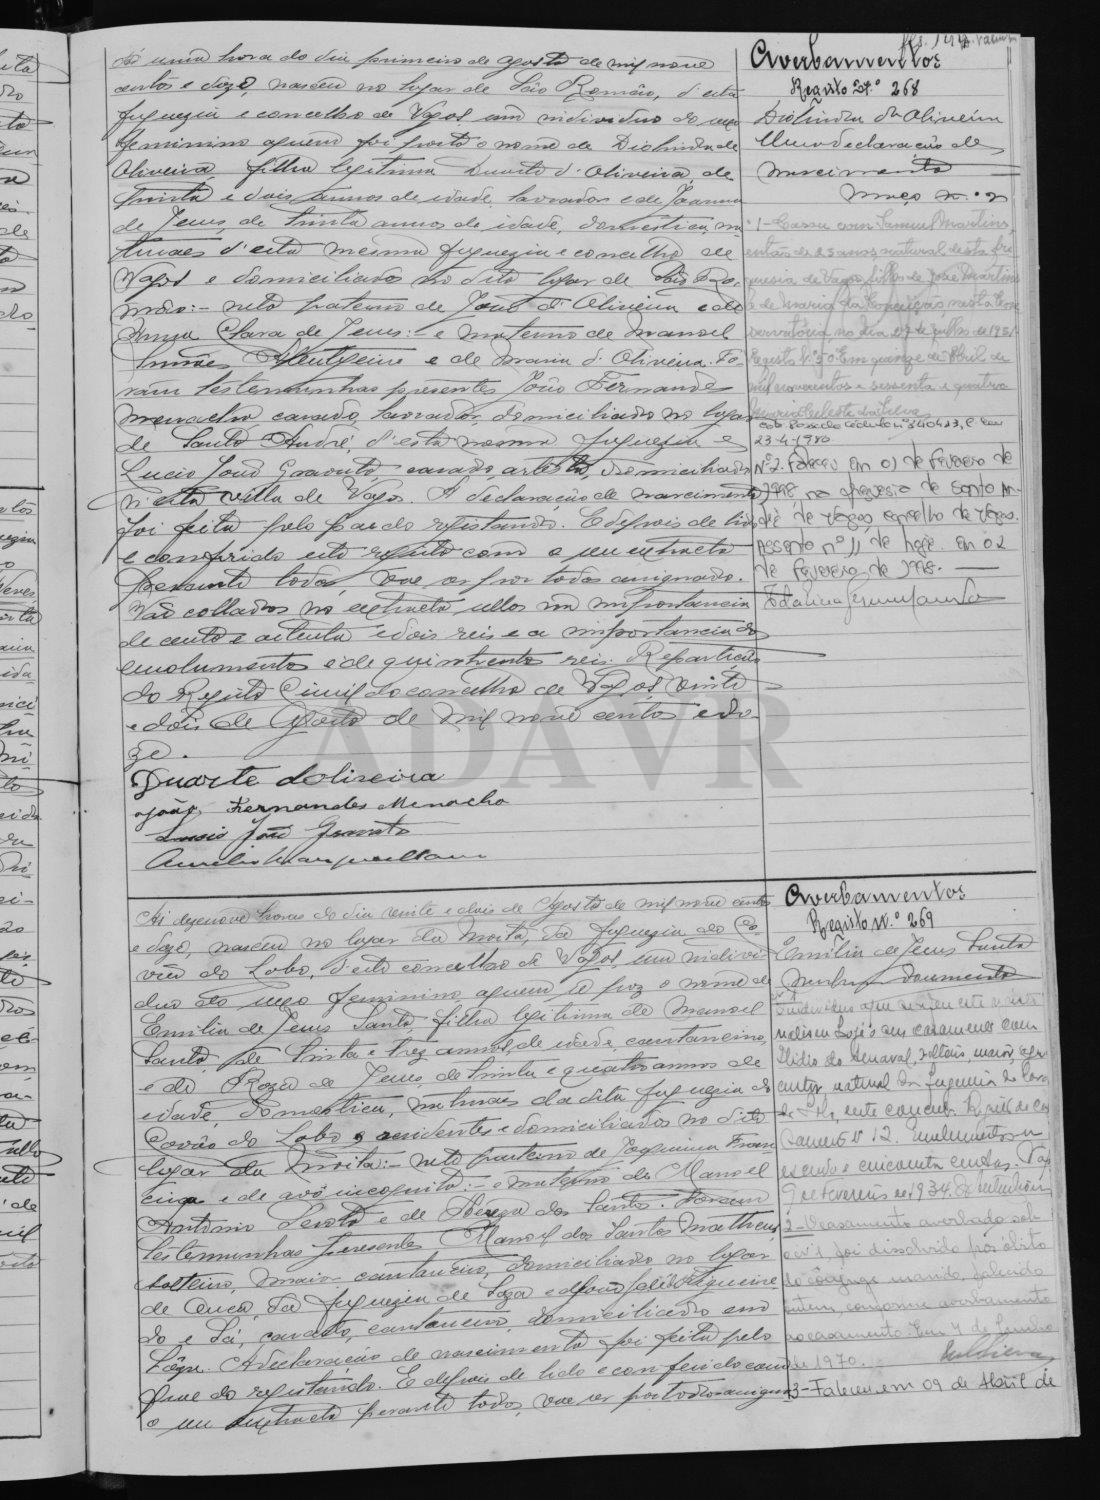 Á uma hora do dia primeiro de agosto de mil nove
centos e doze, nasceu no lugar de São Romão, d'esta
freguezia e concelho de Vagos um individuo do sexo
feminino aquem foi posto o nome de Diolinda de
Oliveira, filha legitima Duarte d'Oliveira, de
trinta e dois annos de idade, lavrador e de Joanna
de Jesus, de trinta annos de idade, domestica, na
turaes d'esta mesma freguezia e concelho de
Vagos e domiciliados no dito lugar de São Ro
mão:- neta paterna de João d'Oliveira e de
Clara de Jesus:- e materna de Manoel
e de Maria d'Oliveira. Fo-
ram testemunhas presentes João Fernandes
Menacho, casado, lavrador, domiciliado no lugar
de Santo André, d'esta mesma freguezia e
Lucio João Gravato, casado, artista, domiciliado
n'esta villa de Vagos. A declaração de nascimento
foi feita pelo pae do registando. E depois de lido
e conferido este registo com o seu extracto
perante todos, vae ser por todos assignado.
Vão collados no extracto sellos na importancia
de cento e setenta e dois reis e a importancia dos
emolumentos é de quinhentos reis. Repartição
do Registo Civil do concelho de Vagos, vinte
e dois de Agosto de mil nove centos e do-
ze.
Duarte dOliveira
João Fernandes Menacho
Lucio João Gravato
Averbamentos
Registo N.º 268
Diolinda de Oliveira
Uma declaração de
nascimento
Maço n.º
1- Casou com Samuel Martins,
então de 23 anos, natural desta fre
guesia de Vagos, filho de José Martins
e de Maria da Conceição, nesta Con
servatória, no dia 27 de julho de 1931
Registo N.º 30 Em quinze de Abril de
mil novecentos e sessenta e quatro
Maria Celeste da Silva
23-4-1980
N.º 2. Faleceu em 01 de Fevereiro de
1998 na freguesia de Santo An-
dré de Vagos, concelho de Vagos.
Assento nº 11 de hoje. em 02
de Fevereiro de 1998.
ADAVR
Ás dezenove horas do dia vinte e dois de Agosto de mil nove centos
e doze, nasceu no lugar da Moita, da freguezia do Co-
vão do Lobo, d'este concelho de Vagos, um indivi-
duo do sexo feminino aquem se poz o nome de
Emilia de Jesus Santa, filha legitima de Manoel
Santo, de trinta e trez annos de idade, cantaneiro,
e de Roza de Jesus, de trinta e quatro annos de
edade, domestica, naturaes da dita freguezia do
Covão do Lobo e residentes e domiciliados no dito
lugar da Moita:- neta paterna de Joaquina Fran
cisca e de avô incognito:- e materna de Manoel
Antonio e de Thereza dos Santos. Foram
testemunhas presentes Manoel dos Santos Matheus,
solteiro, maior cantaneiro, domiciliado no lugar
de Ouca, da freguezia de Soza e João Felix Figueire
do e Sá, casado, cantaneiro, domiciliado em
A declaração de nascimento foi feita pelo
pae do registando. E depois de lido e conferido com
o seu extracto perante todos, vae ser por todos assigna
Averbamentos
Registo N.º 269
Emilia de Jesus Santa
Nenhum documento
N.º 1
O individuo a que se refere este assento
realisou hoje o seu casamento com
Ilidio do Senaval, solteiro, maior, agri
cultor, natural da freguezia do Covão
do Lobo, neste concelho. Registo de Ca
samento N.º 12. Emolumentos um
escudo e cincoenta centavos. Vagos
9 de Fevereiro de 1934.
2- O casamento averbado sob
o nº 1, foi dissolvido por óbito
do cônjuge marido, falecido
ontem, conforme averbamento
ao casamento. Em 4 de Junho
de 1970.
3- Faleceu em 09 de Abril de